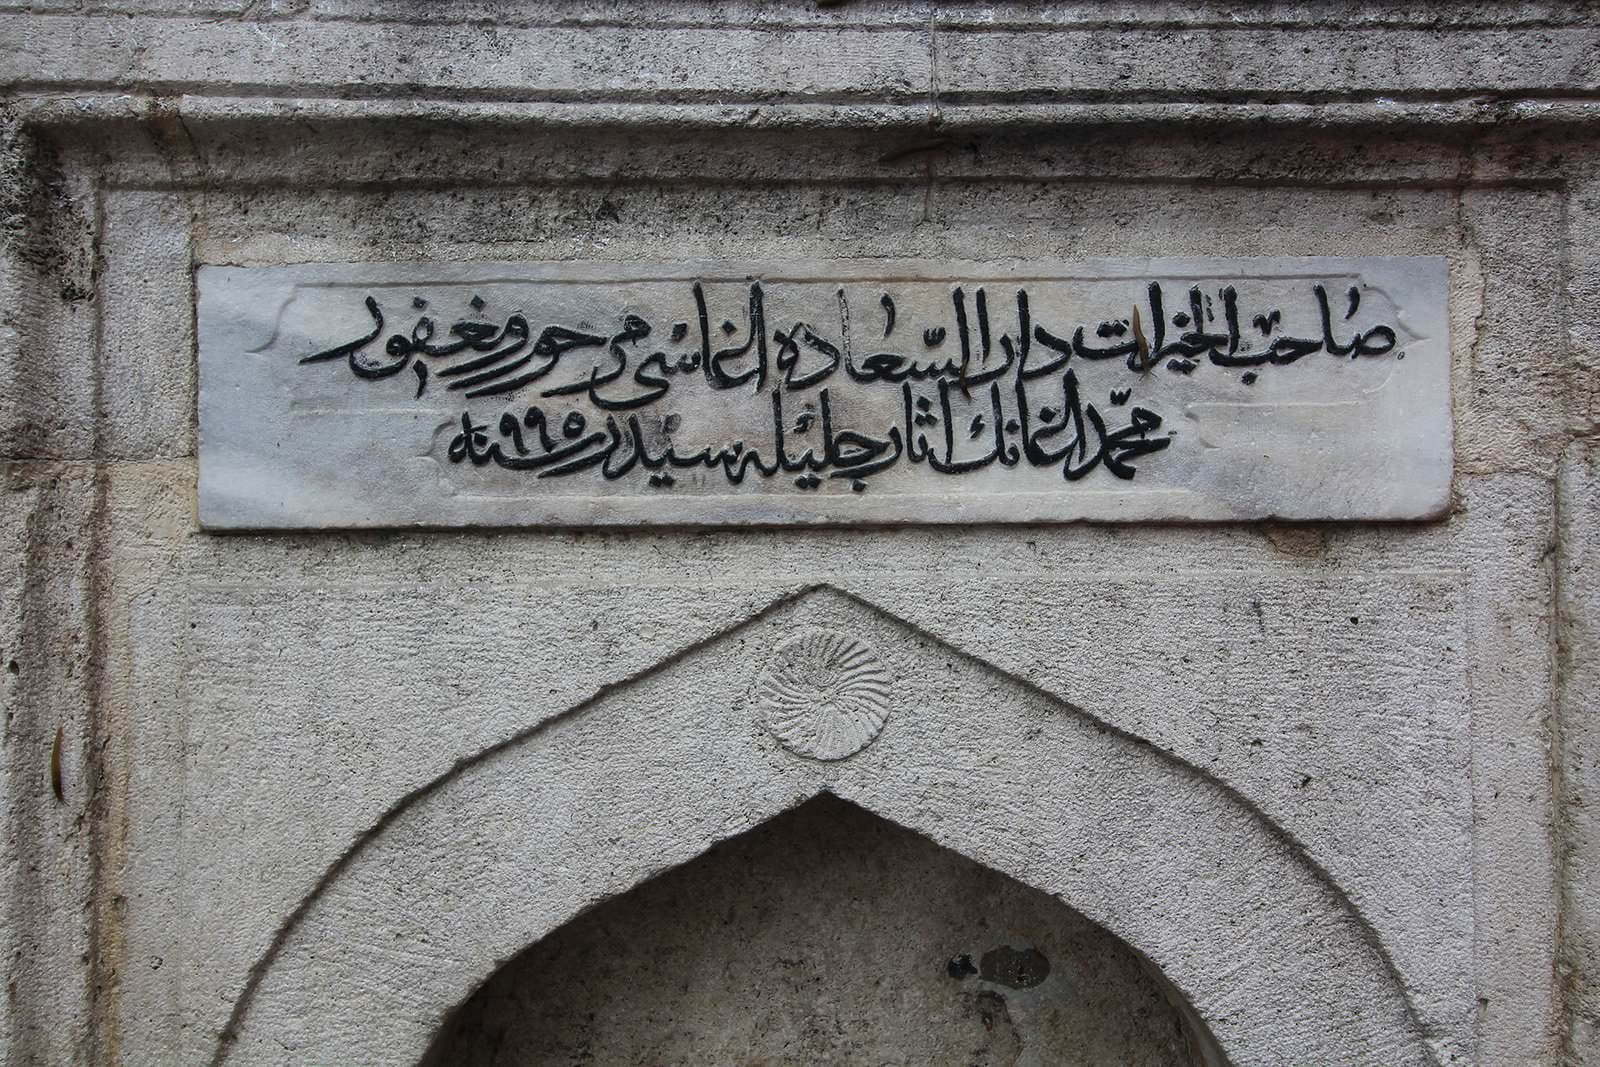 صاحب الخيرات دار السّعاده اغاسی مرحوم و مغفور
محمّد اغانك اثار جليله سيدر سنه ٩٩٥